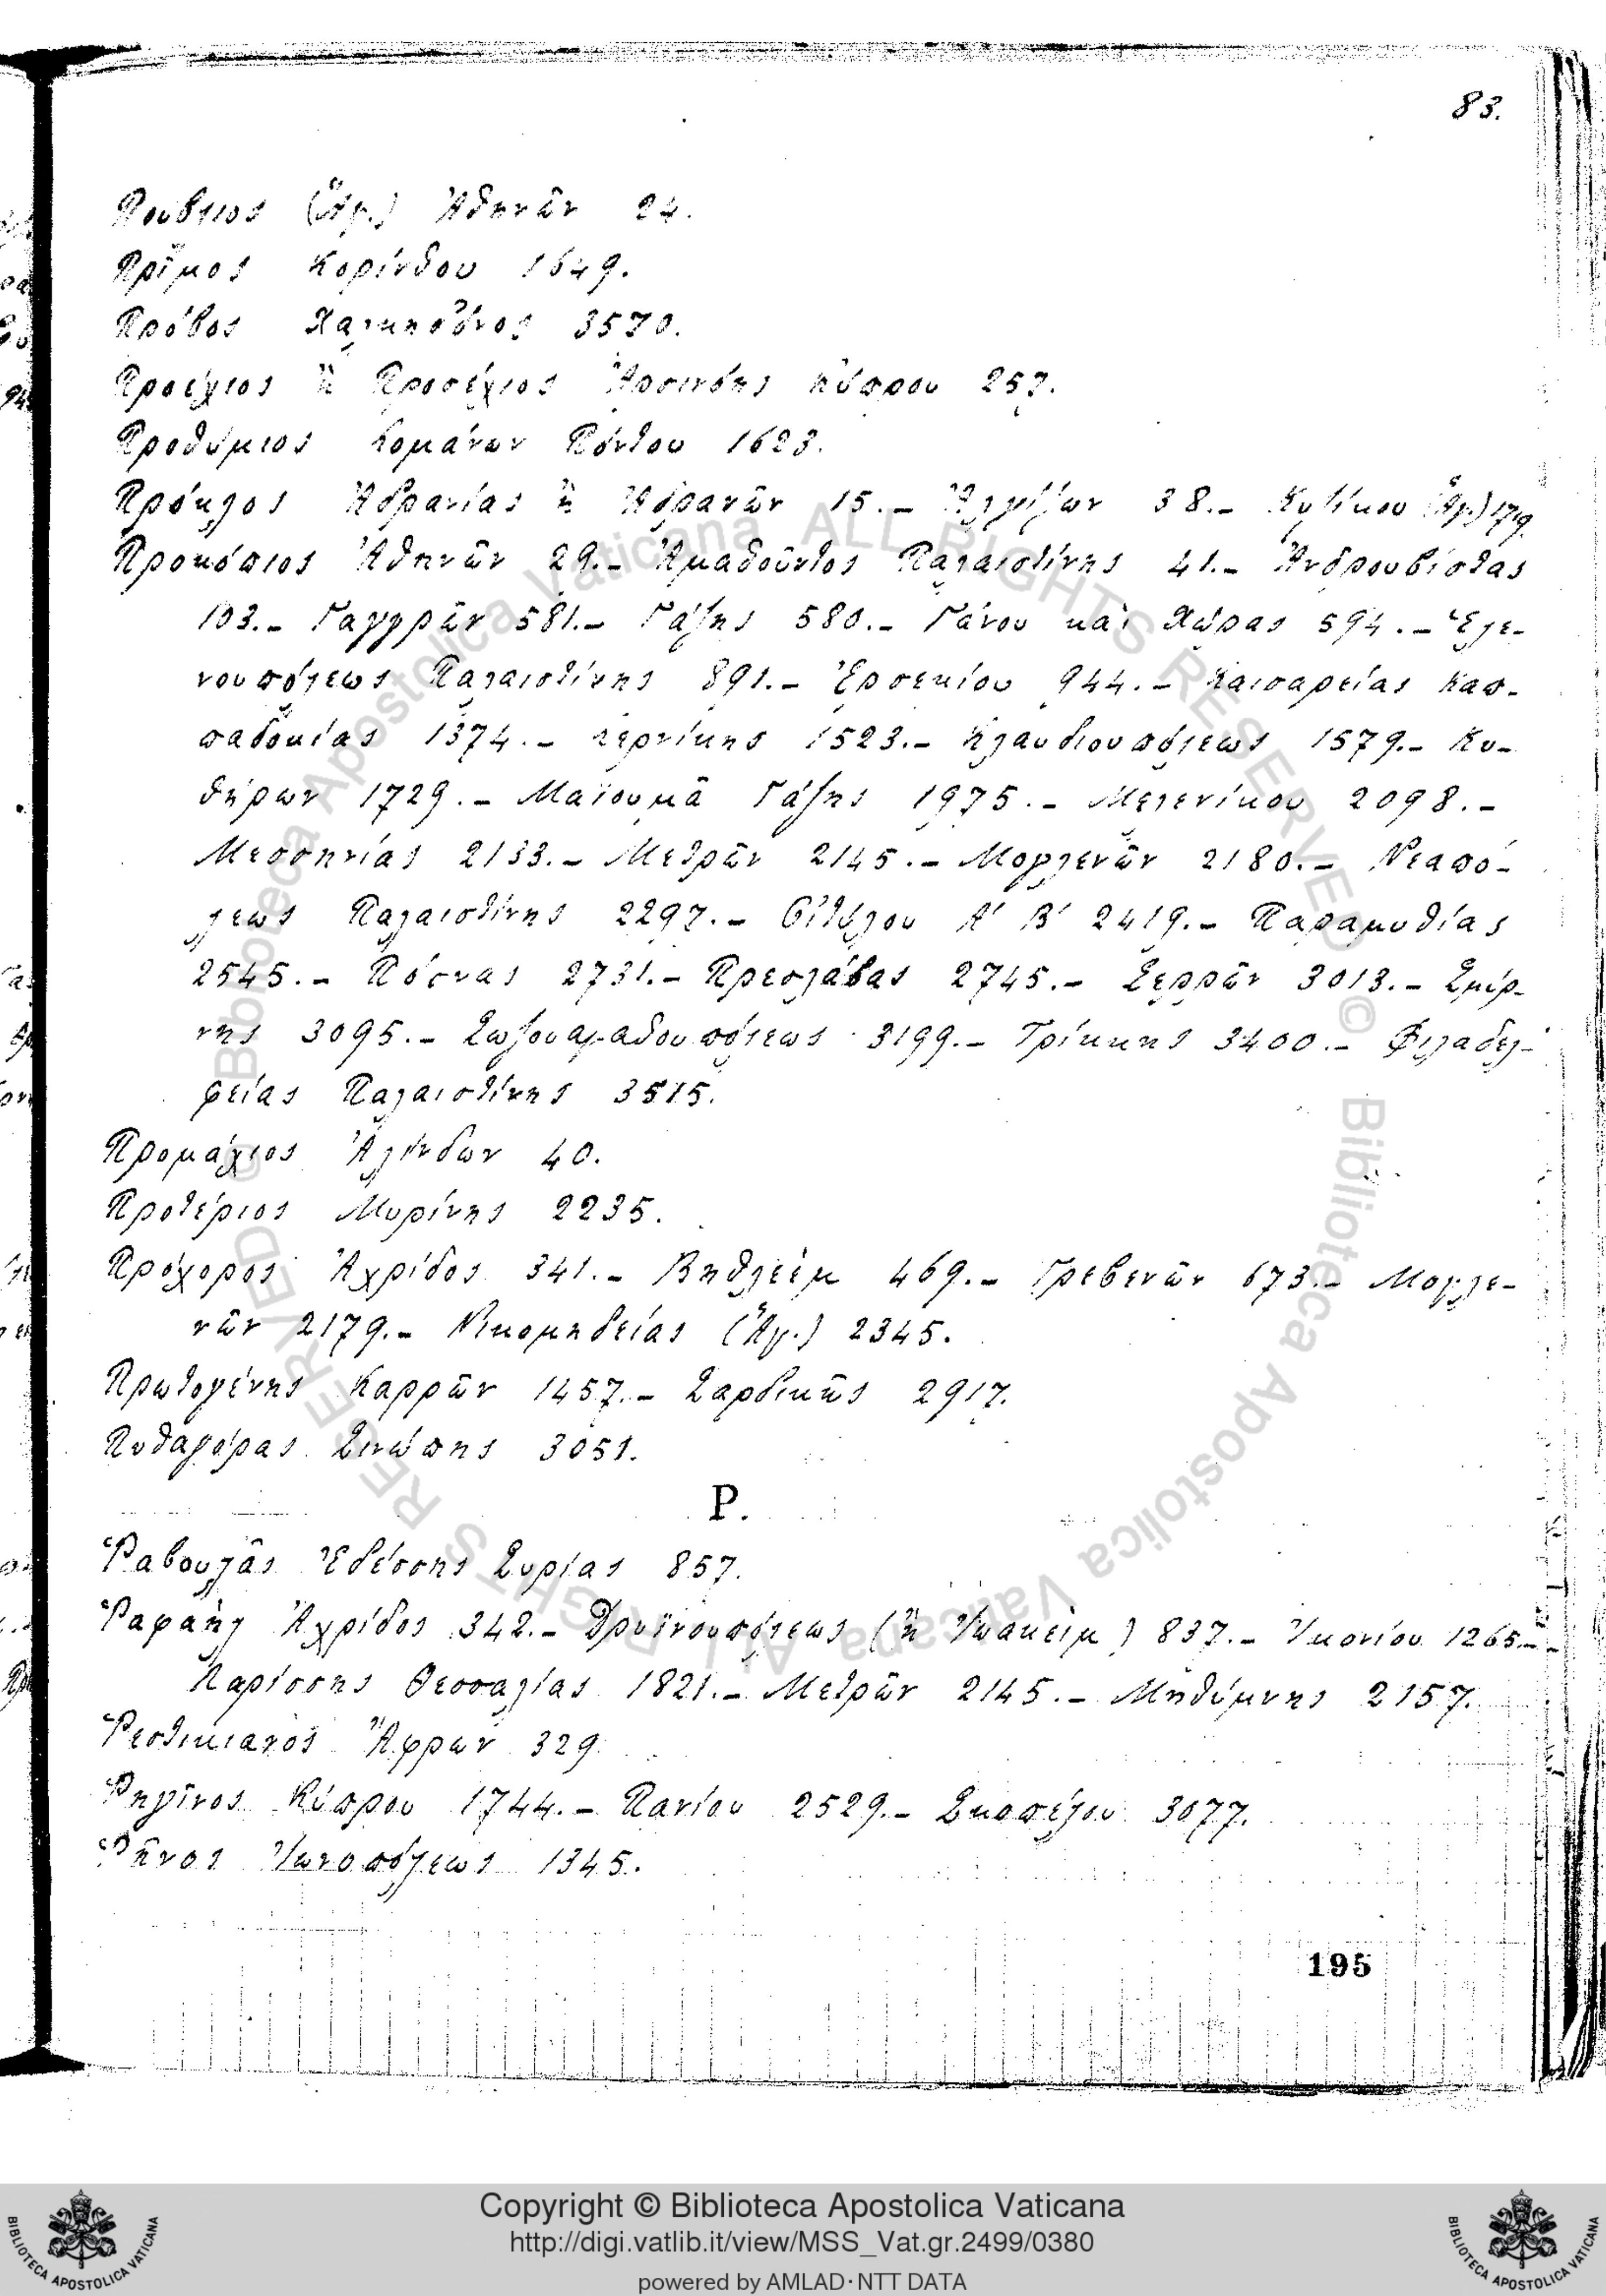 83.
Πούβλιος (Ἅγ.) Ἀθηνῶν 24.
Πρῖμος Κορίνθου 1649.
Πρόβος Χαλκηδόνος 3570.
Προέχιος ἢ Προσέχιος Ἀρσινόης Κύπρου 257.
Προθύμιος Κομάνων Πόντου 1623.
Πρόκλος Ἀδρανίας ἢ Ἀδρανῶν 15.- Ἀλγίζων 38.- Κυζίκου (Ἅγ.) 1719.
Προκόπιος Ἀθηνῶν 29.- Ἀμαθοῦντος Παλαιστίνης 41.- Ἀνδρουβίστας
103.- Γαγγρῶν 581.- Γάζης 580.- Γάνου καὶ Χώρας 594.- Ἑλε-
νουπόλεως Παλαιστίνης 891.- Ἐρσεκίου 944.- Καισαρείας Καπ-
παδοκίας 1374.- Κερνίκης 1523.- Κλαυδιουπόλεως 1579.- Κυ-
θήρων 1729.- Μαϊουμᾶ Γάζης 1975.- Μελενίκου 2098.-
Μεσσηνίας 2133.- Μετρῶν 2145.- Μογλενῶν 2180.- Νεαπό-
λεως Παλαιστίνης 2297.- Οἰτύλου Α′ Β′ 2419.- Παραμυθίας
2545.- Πόσνας 2731.- Πρεσλάβας 2745.- Σερρῶν 3013.- Σμύρ-
νης 3095.- Σωζουαγαθουπόλεως 3199.- Τρίκκης 3400.- Φιλαδελ-
φείας Παλαιστίνης 3515.
Προμάχιος Ἀλίνδων 40.
Προτέριος Μυρίνης 2235.
Πρόχορος Ἀχρίδος 341.- Βηθλεὲμ 469.- Γρεβενῶν 673.- Μογλε-
νῶν 2179.- Νικομηδείας (Ἅγ.) 2345.
Πρωτογένης Καρρῶν 1457.- Σαρδικῆς 2917.
Πυθαγόρας Σινώπης 3051.
Ρ.
Ῥαβουλᾶς Ἐδέσσης Συρίας 857.
Ῥαφαὴλ Ἀχρίδος 342.- Δρυϊνουπόλεως (ἢ Ἰωακεὶμ) 837.- Ἰκονίου 1265.-
Λαρίσσης Θεσσαλίας 1821.- Μετρῶν 2145.- Μηθύμνης 2157.
Ῥεστικιανὸς Ἄφρων 329
Ῥηγῖνος Κύπρου 1744.- Πανίου 2529.- Σκοπέλου 3077.
Ῥῆνος Ἰωνοπόλεως 1345.
195
© Biblioteca Apostolica Vaticana ALL RIGHTS RESERVED © Biblioteca Apostolica Vaticana ALL RIGHTS RESERVED
Copyright © Biblioteca Apostolica Vaticana
http://digi.vatlib.it/view/MSS_Vat.gr.2499/0380
powered by AMLAD·NTT DATA
BIBLIOTECA APOSTOLICA VATICANA
BIBLIOTECA APOSTOLICA VATICANA